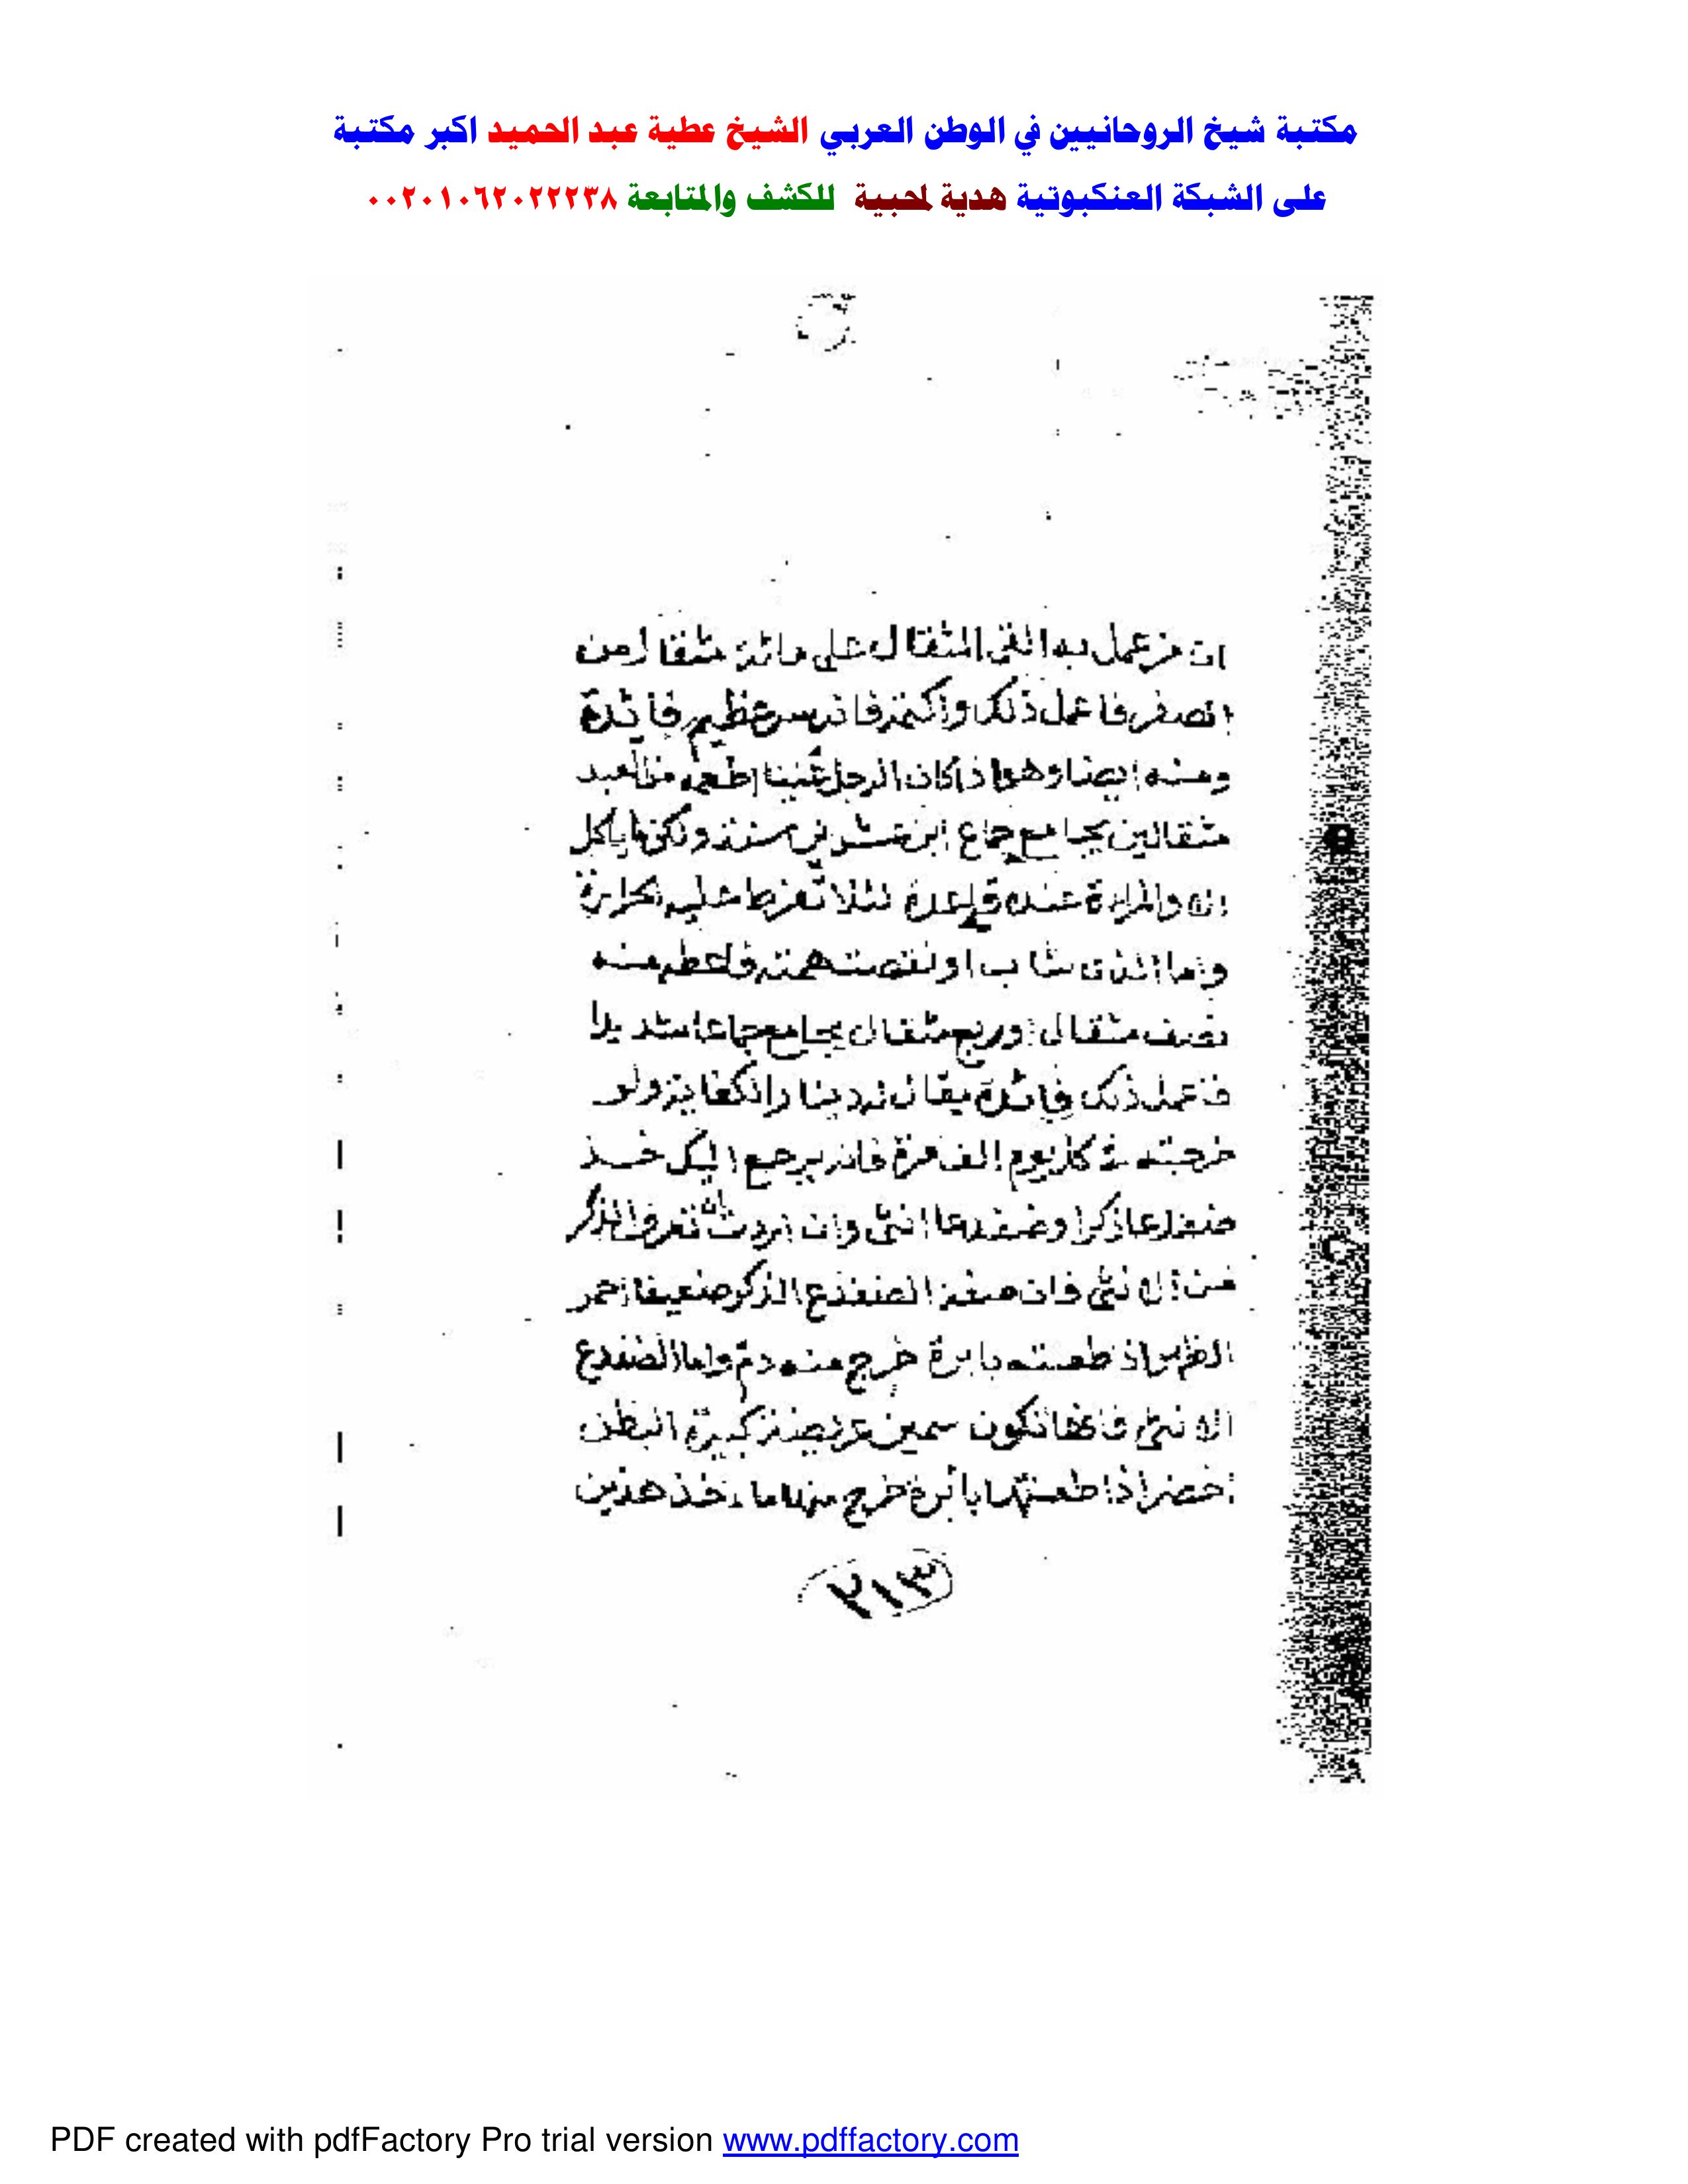 مكتبة شيخ الروحانيين في الوطن العربي الشيخ عطية عبد الحميد اكبر مكتبة
على الشبكة العنكبوتية هدية لمحبية للكشف والمتابعة ٠٠٢٠١٠٦٢٠٢٢٢٣٨
ان من عمل به القى المثقال على مائة مثقال من
الصفر فاعمل ذلك واكتمه فانه سر عظيم فائدة
ومنه ايضا وهو اذا كان الرجل عنينا اطعمه من العبد
مثقالين يجامع جماع ابن عشرين سنة ولكن ما ياكل
الا والمراءة عنده قاعدة لئلا تفرط عليه الحرارة
واما الذى شاب او نقصت همته فاعطه منه
نصف مثقال او ربع مثقال يجامع جماعا شديدا
فاعمل ذلك فائدة يقال له دينار الكفاية ولو
خرجته في كل يوم الف مرة فانه يرجع اليك خذ
ضفدعا ذكرا وضفدعا انثى وان اردت ان تعرف الذكر
من الانثى فان صفة الضفدع الذكر ضعيفا احمر
الظهر اذ طعنته بابرة خرج منه دم واما الضفدع
الانثى فانها تكون سمين عريضة كبيرة البطن
اخضر اذا طعنتها بأبرة خرج منها ماء خذ هذين
٢١٣
PDF created with pdfFactory Pro trial version www.pdffactory.com